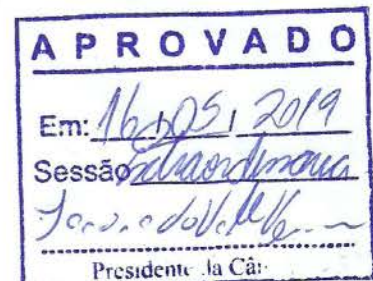 APROVADO
Em: 16/05/2019
Sessão Extraordinária
Presidente da Câ